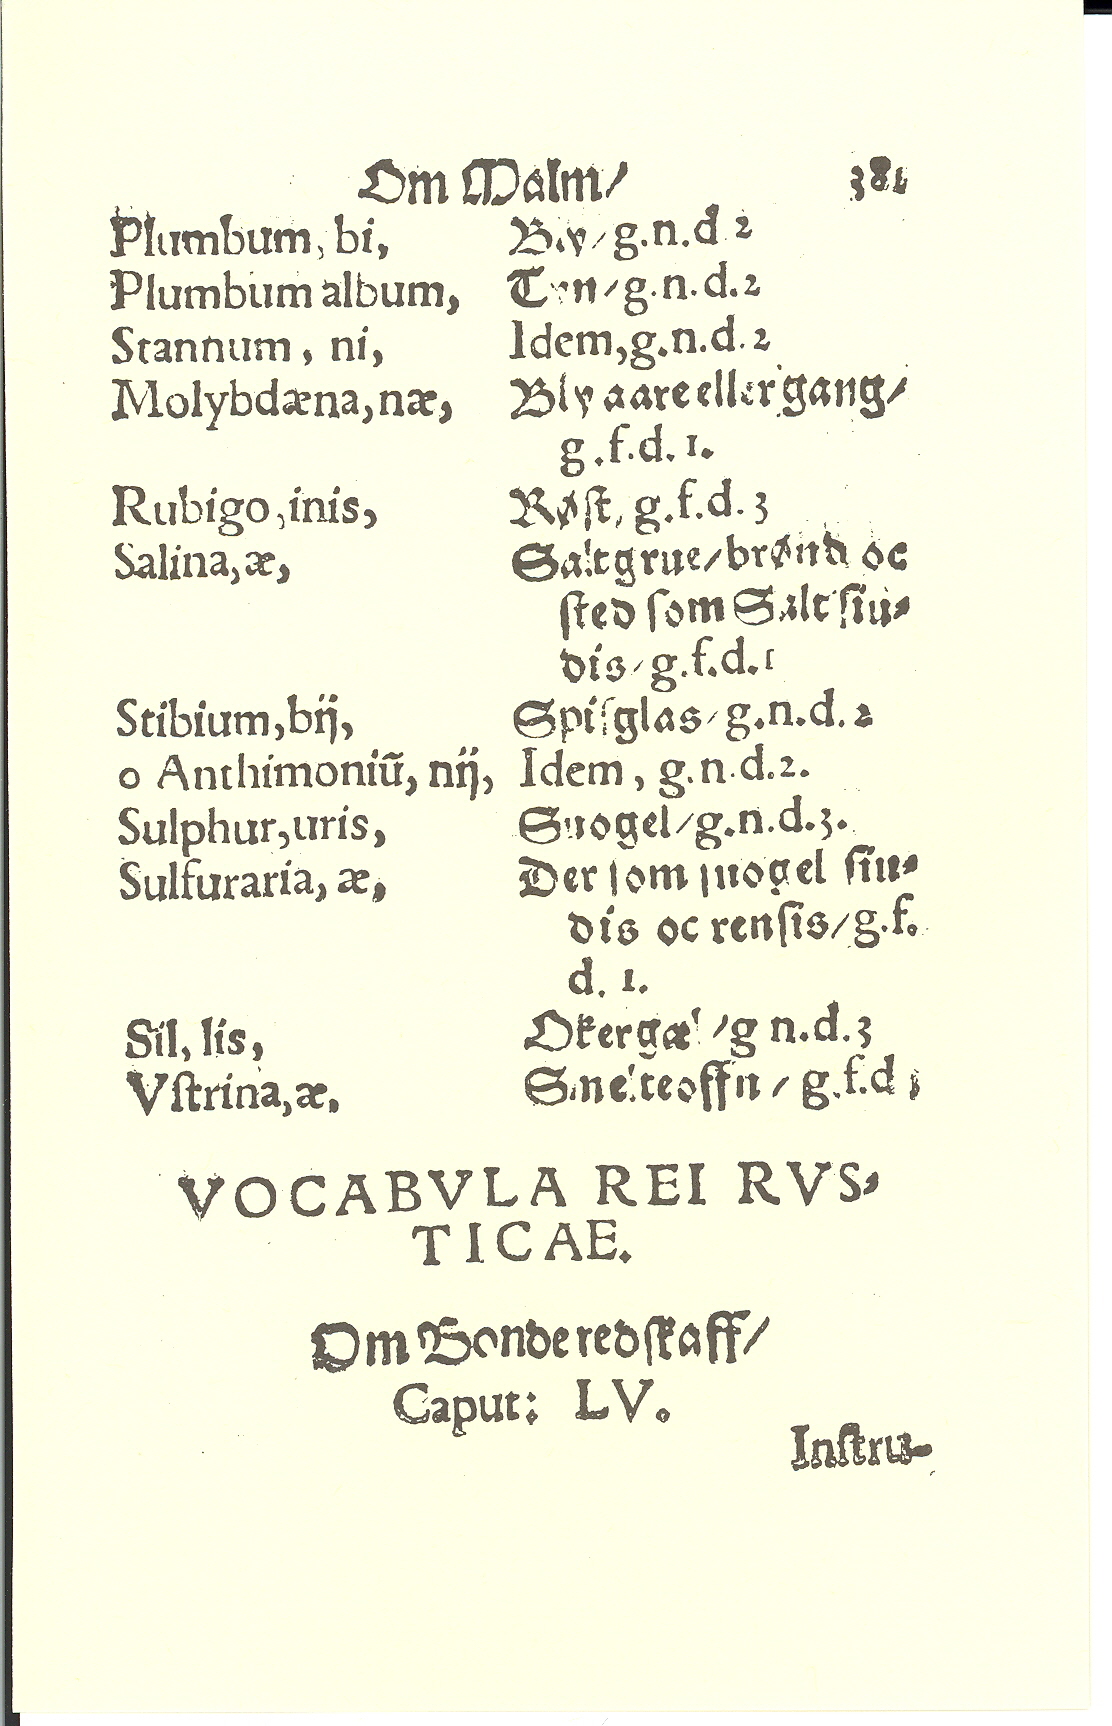 Om Malm/ 381
Plumbum, bi, Bly/g.n.d 2
Plumbum album, Tyn/g.n.d.2
Stannum, ni, Idem,g.n.d.2
Molybdæna,næ, Bly aare eller gang/
g.f.d.1.
Rubigo,inis, Røſt, g.f.d.3
Salina,æ, Saltgrue/brønd oc
ſted ſom Salt ſiu-
dis/g.f.d.1
Stibium,bij, Spiſglas/g.n.d.2
o Anthimoniũ, nij, Idem, g.n.d.2.
Sulphur,uris, Suogel/g.n.d.3.
Sulfuraria, æ, Der ſom ſuogel ſiu-
dis oc renſis/g.f.
d. 1.
Sil, lis, Okergæl/g n.d.3
Vſtrina,æ, Smelteoffn/g.f.d
VOCABVLA REI RVS-
TICAE.
Om Bonde redſkaff/
Caput: LV.
Inſtru-